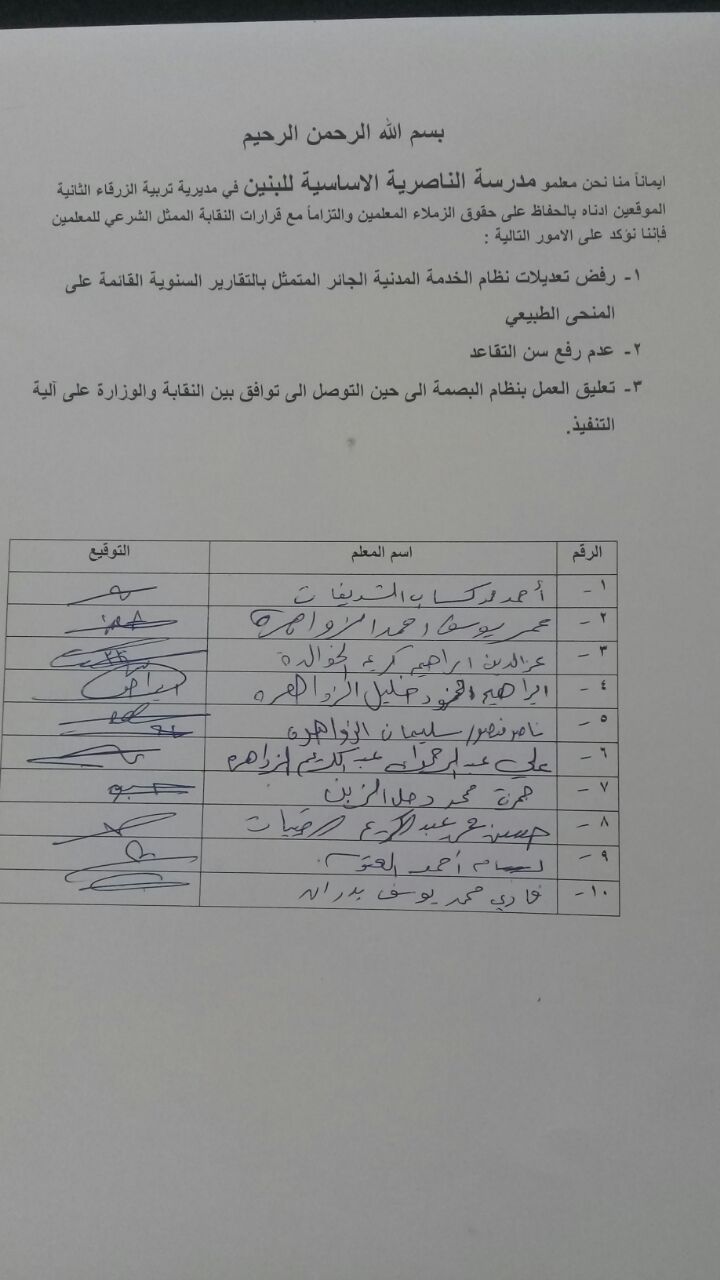 بسم الله الرحمن الرحيم
ايماناً منا نحن معلمو مدرسة الناصرية الاساسية للبنين في مديرية تربية الزرقاء الثانية
الموقعين ادناه بالحفاظ على حقوق الزملاء المعلمين والتزاماً مع قرارات النقابة الممثل الشرعي للمعلمين
فإننا نؤكد على الامور التالية :
١- رفض تعديلات نظام الخدمة المدنية الجائر المتمثل بالتقارير السنوية القائمة على
المنحى الطبيعي
٢- عدم رفع سن التقاعد
٣- تعليق العمل بنظام البصمة الى حين التوصل الى توافق بين النقابة والوزارة على آلية
التنفيذ.
الرقم اسم المعلم التوقيع
١- أحمد محمد كساب الشديفات
٢- عمر يوسف احمد الزواهرة
٣- عزالدين ابراهيم كريم الخوالدة
٤- ابراهيم محمود خليل الزواهره
٥- ناصر منصور سليمان الزواهرة
٦- علي عبدالرحمن عبدالكريم الزواهره
٧- حمزة محمد الزبن
٨- حسين محمد عبدالكريم
٩- أحمد العتوم
١٠- فادي محمد يوسف بدران